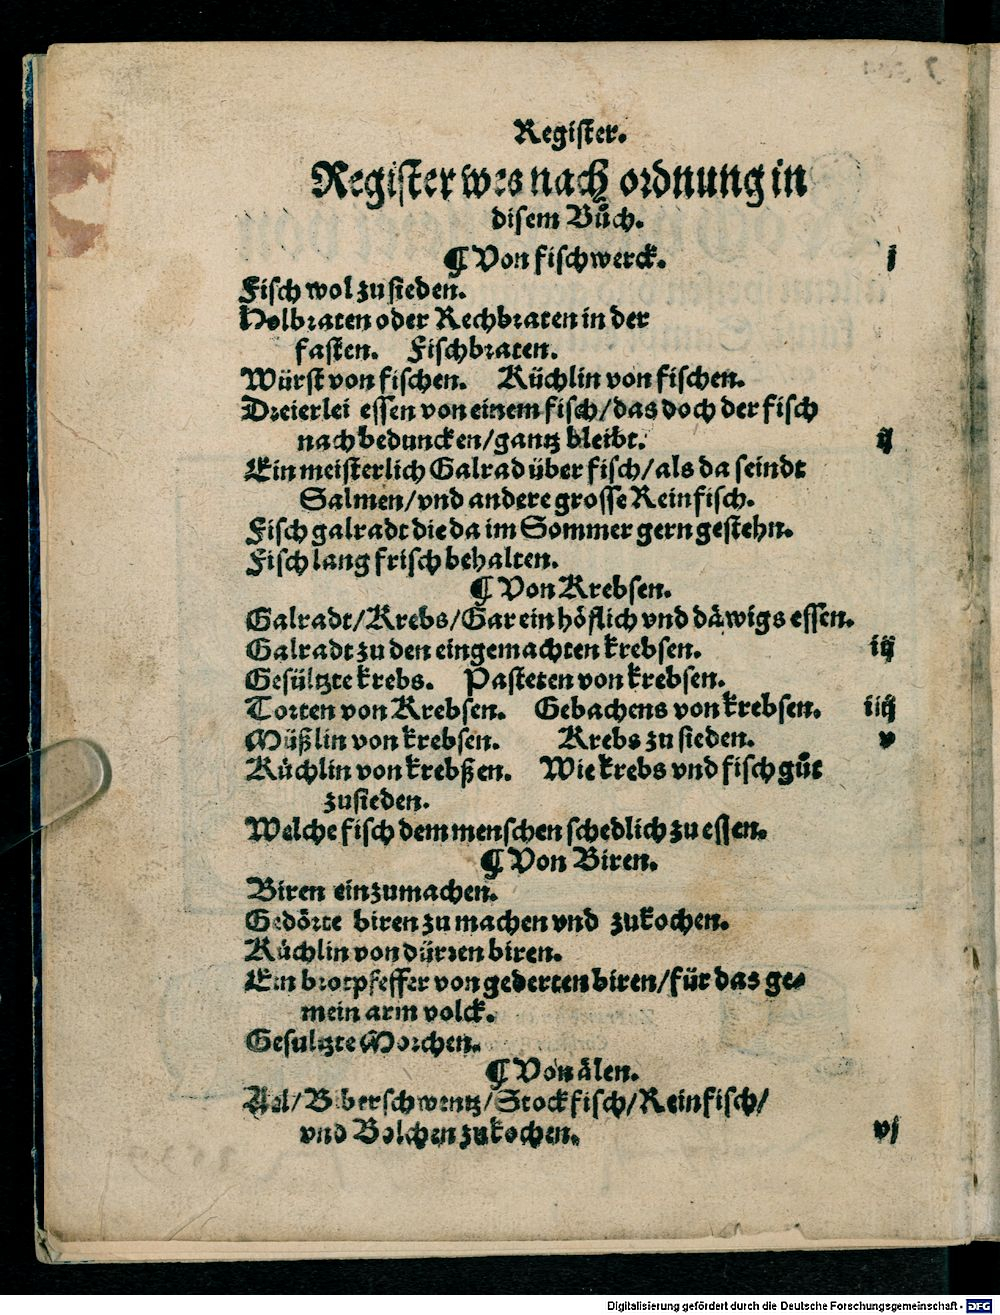 Register.
Register wes nach ordnung in
disem Bůch.
¶ Von fischwerck. j
Fisch wol zu sieden.
Holbraten oder Rechbraten in der
fasten. Fischbraten.
Würst von fischen. Küchlin von fischen.
Dreierlei essen von einem fisch/das doch der fisch
nach beduncken/gantz bleibt. ij
Ein meisterlich Galrad über fisch/als da seindt
Salmen/vnd andere grosse Reinfisch.
Fisch galradt die da im Sommer gern gestehn.
Fisch lang frisch behalten.
¶ Von Krebsen.
Galradt/Krebs/Gar ein höflich vnd däwigs essen.
Galradt zu den eingemachten krebsen. iij
Gesültzte krebs. Pasteten von krebsen.
Torten von Krebsen. Gebachens von krebsen. iiij
Müßlin von krebsen. Krebs zu sieden. v
Küchlin von krebßen. Wie krebs vnd fisch gůt
zusieden.
Welche fisch dem menschen schedlich zu essen.
¶ Von Biren.
Biren einzumachen.
Gedörte biren zu machen vnd zukochen.
Küchlin von dürren biren.
Ein brotpfeffer von gederten biren/für das ge⸗
mein arm volck.
Gesultzte Morchen.
¶ Von älen.
Aal/Biberschwentz/Stockfisch/Reinfisch/
vnd Bolchen zukochen. vj
Digitalisierung gefördert durch die Deutsche Forschungsgemeinschaft - DFG